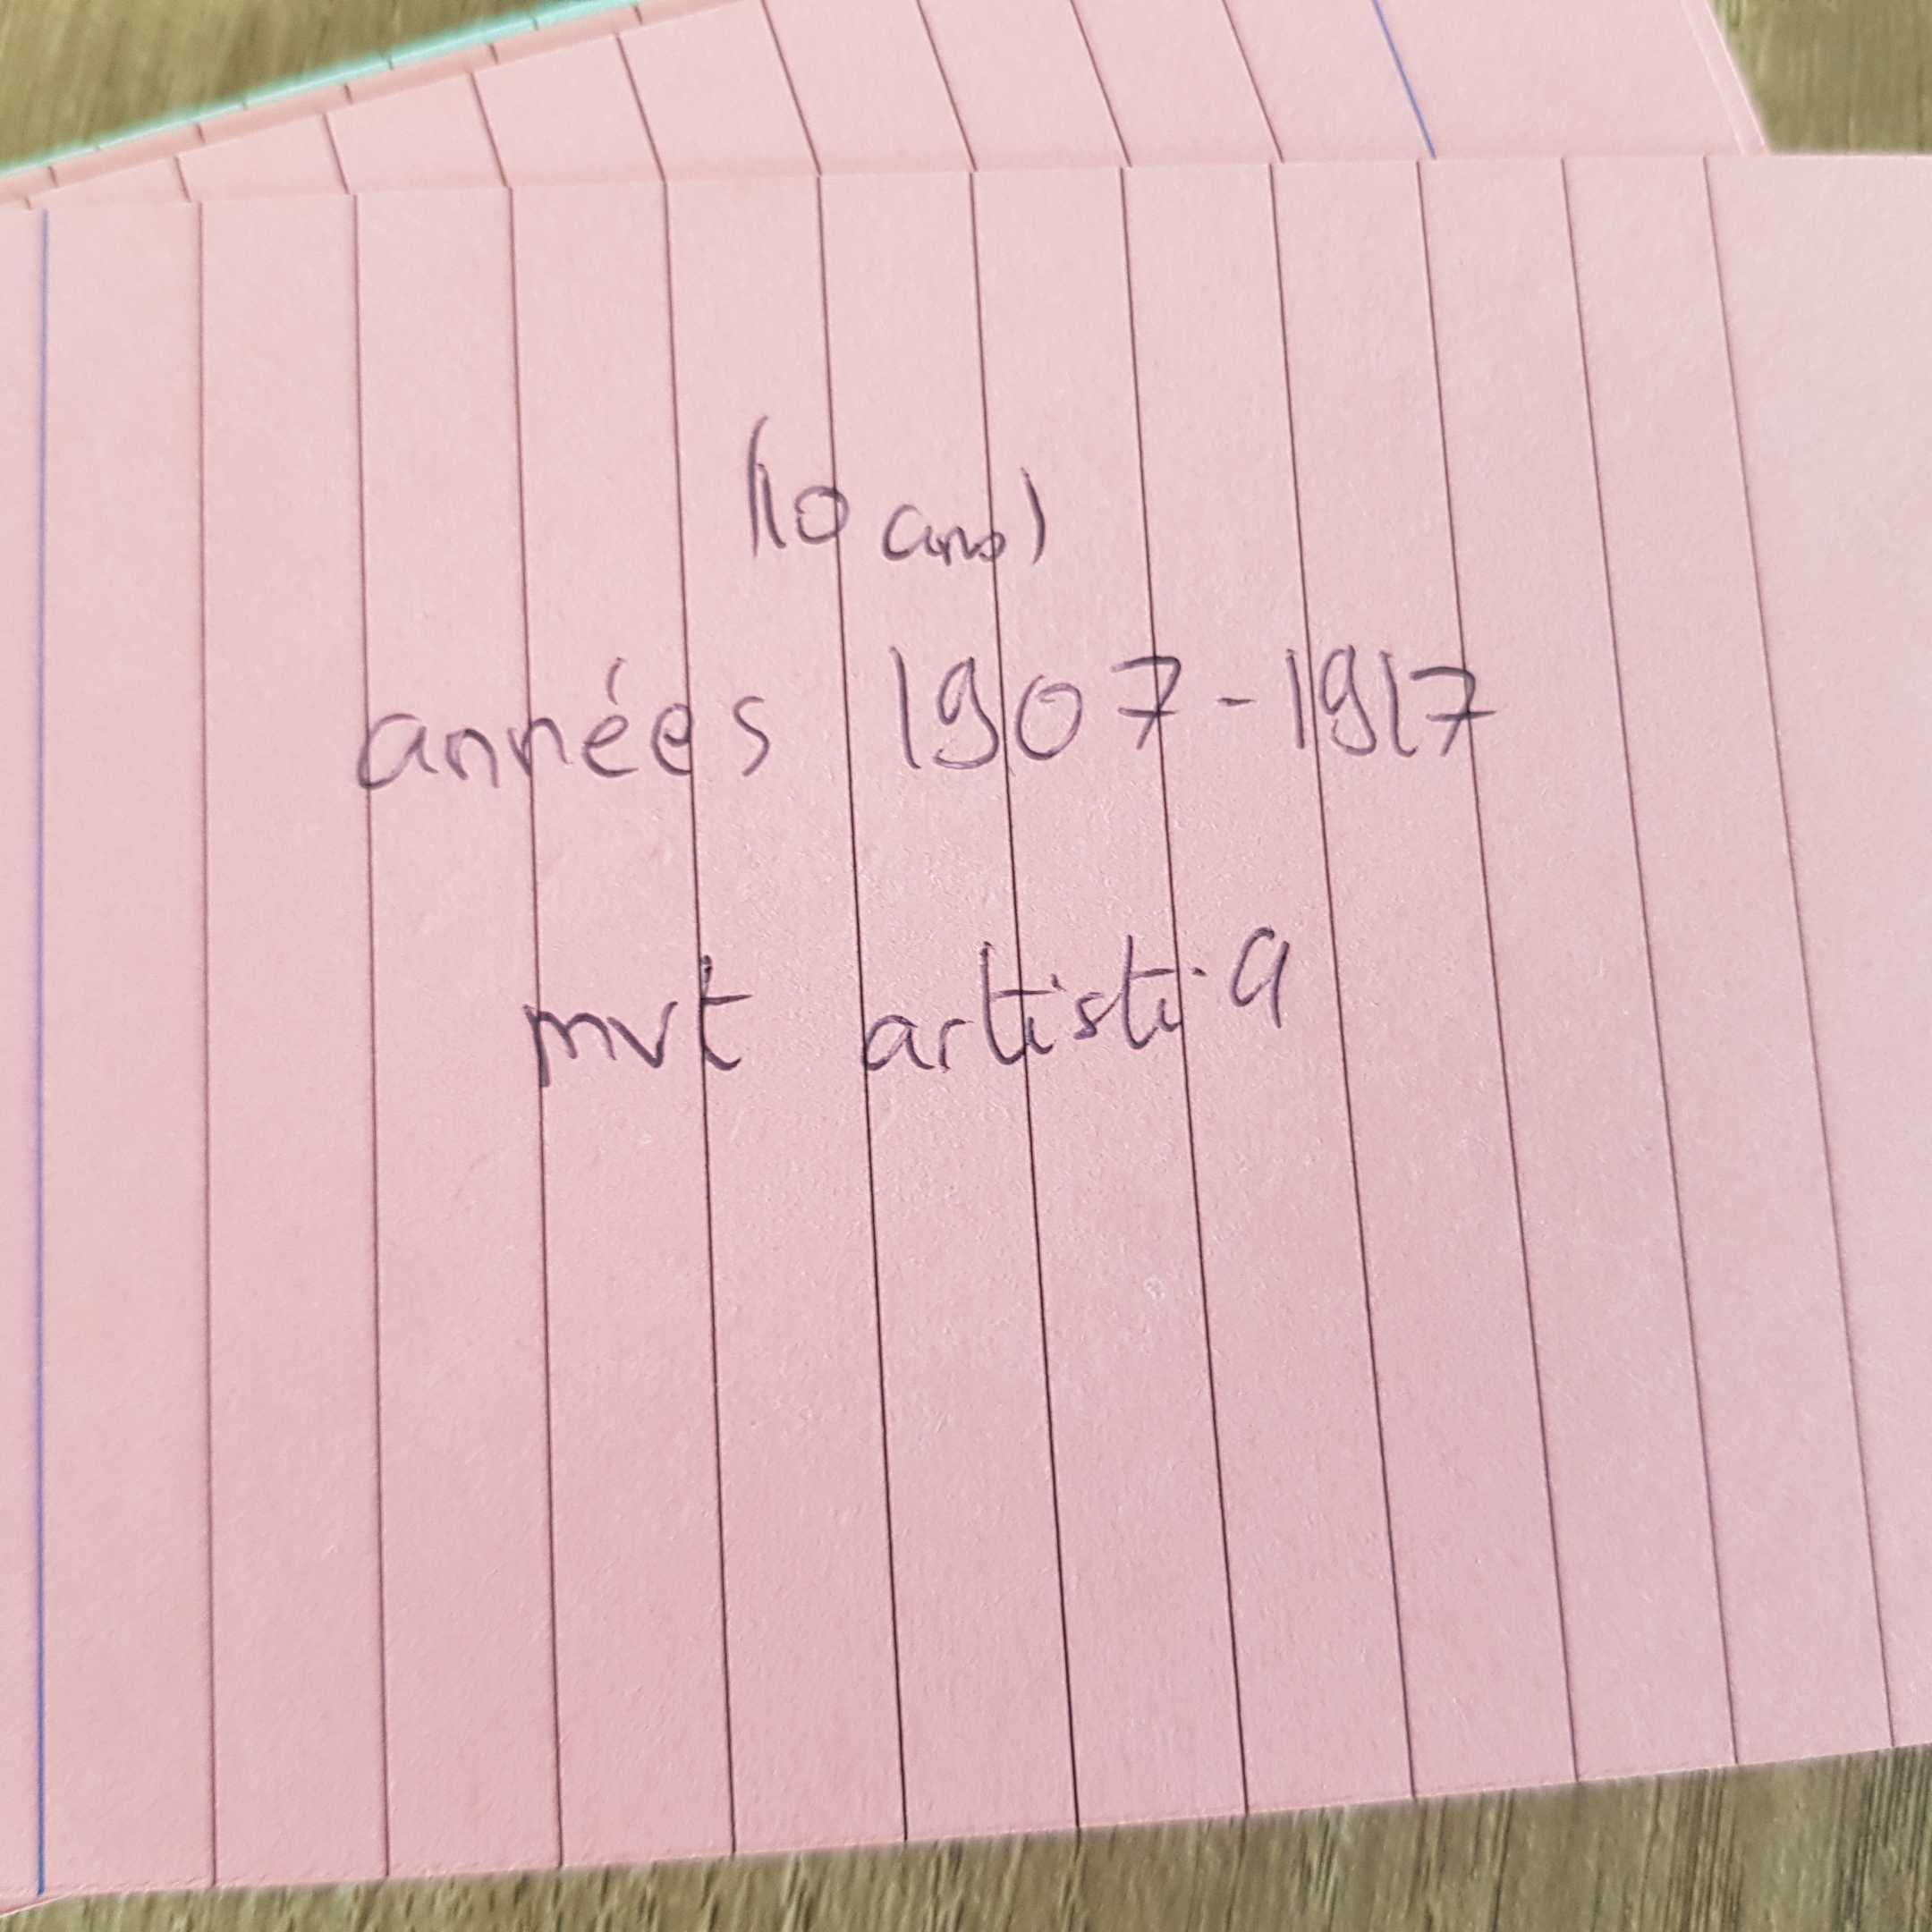 (10 ans)
années 1907-1917
mvt artistiq